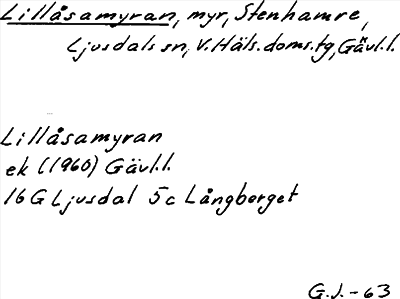 Lillåsamyran, myr, Stenhamre,
Ljusdals sn, V. Häls. doms. tg, Gävl.l.
Lillåsamyran
ek (1960) Gävl.l.
16 G Ljusdal 5c Långberget
G.J. - 63